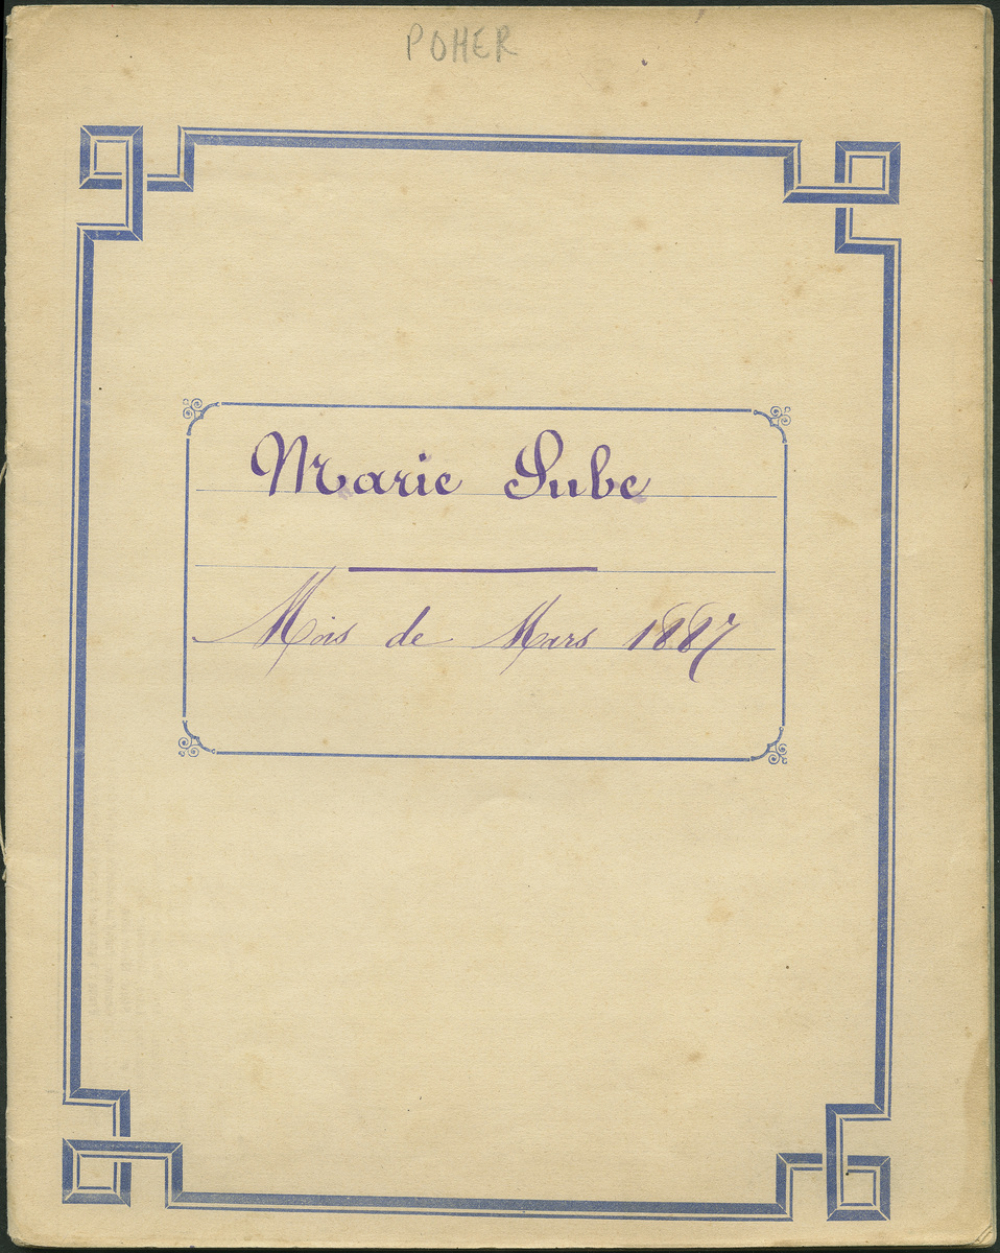 POHER
Marie Sube
Mois de Mars 1887